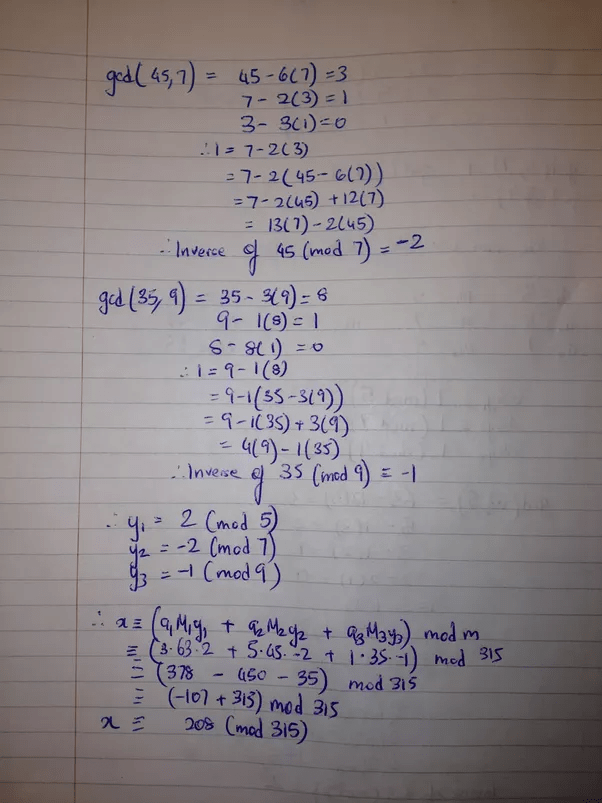 gcd(45,7) = 45-6(7)=3
7-2(3)=1
3-3(1)=0
∴1= 7-2(3)
=7-2(45-6(7))
=7-2(45)+12(7)
= 13(7)-2(45)
∴Inverse of 45 (mod 7) = -2
gcd(35,9) = 35-3(9)=8
9-1(8)=1
8-8(1)=0
∴1=9-1(8)
=9-1(35-3(9))
=9-1(35)+3(9)
=4(9)-1(35)
∴Inverse of 35 (mod 9) = -1
∴y₁= 2 (mod 5)
y₂ = -2 (mod 7)
y₃ = -1 (mod 9)
∴ x ≡ (a₁M₁y₁ + a₂M₂y₂ + a₃M₃y₃) mod m
≡ (3·63·2 + 5·45·-2 + 1·35·-1) mod 315
≡ (378 - 450 - 35) mod 315
≡ (-107 + 315) mod 315
x ≡ 208 (mod 315)